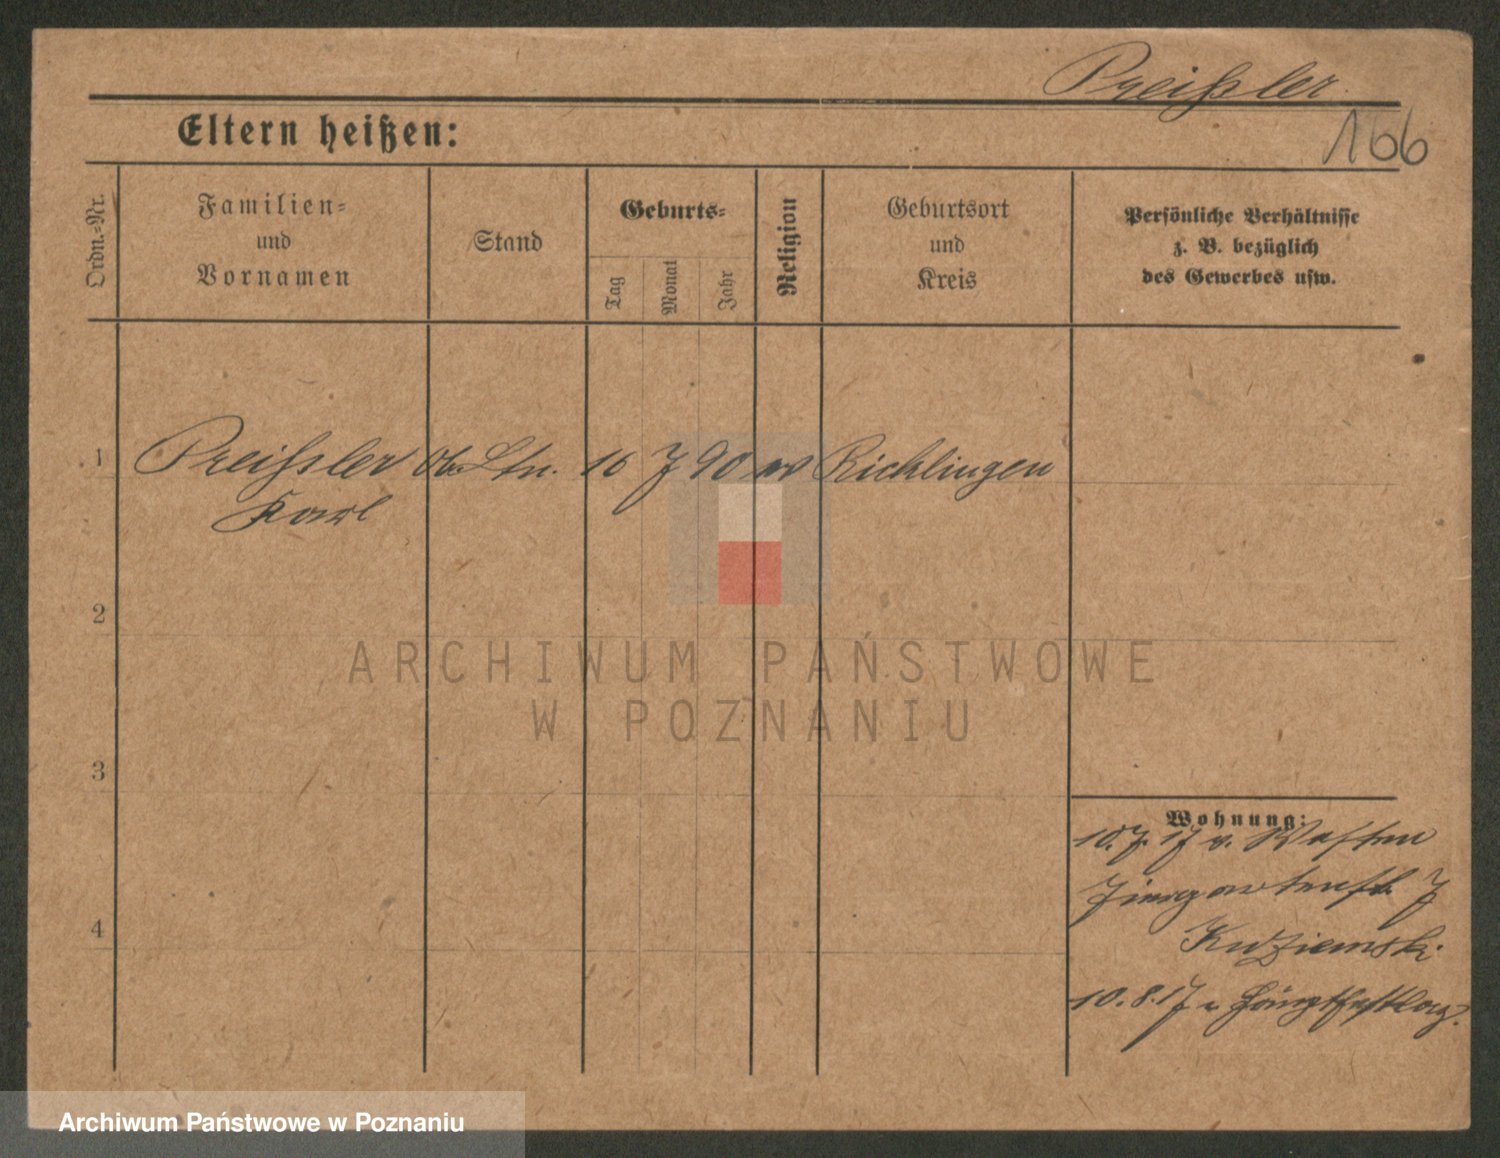 Preißler.
Eltern heißen:
166
Ordn.-Nr.
Familien-
und
Vornamen
Stand
Geburts-
Tag
Monat
Jahr
Religion
Geburtsort
und
Kreis
Persönliche Verhältnisse
z. B. bezüglich
des Gewerbes usw.
1 Preißler Ob. Ltn. 16 7 90 ev Ricklingen
Karl
2
3
4
Wohnung:
10. 7. 17 v. Westen
Tiergartenstr. 7
Kuziemski
10. 8. 17 n.
ARCHIWUM PAŃSTWOWE
W POZNANIU
Archiwum Państwowe w Poznaniu